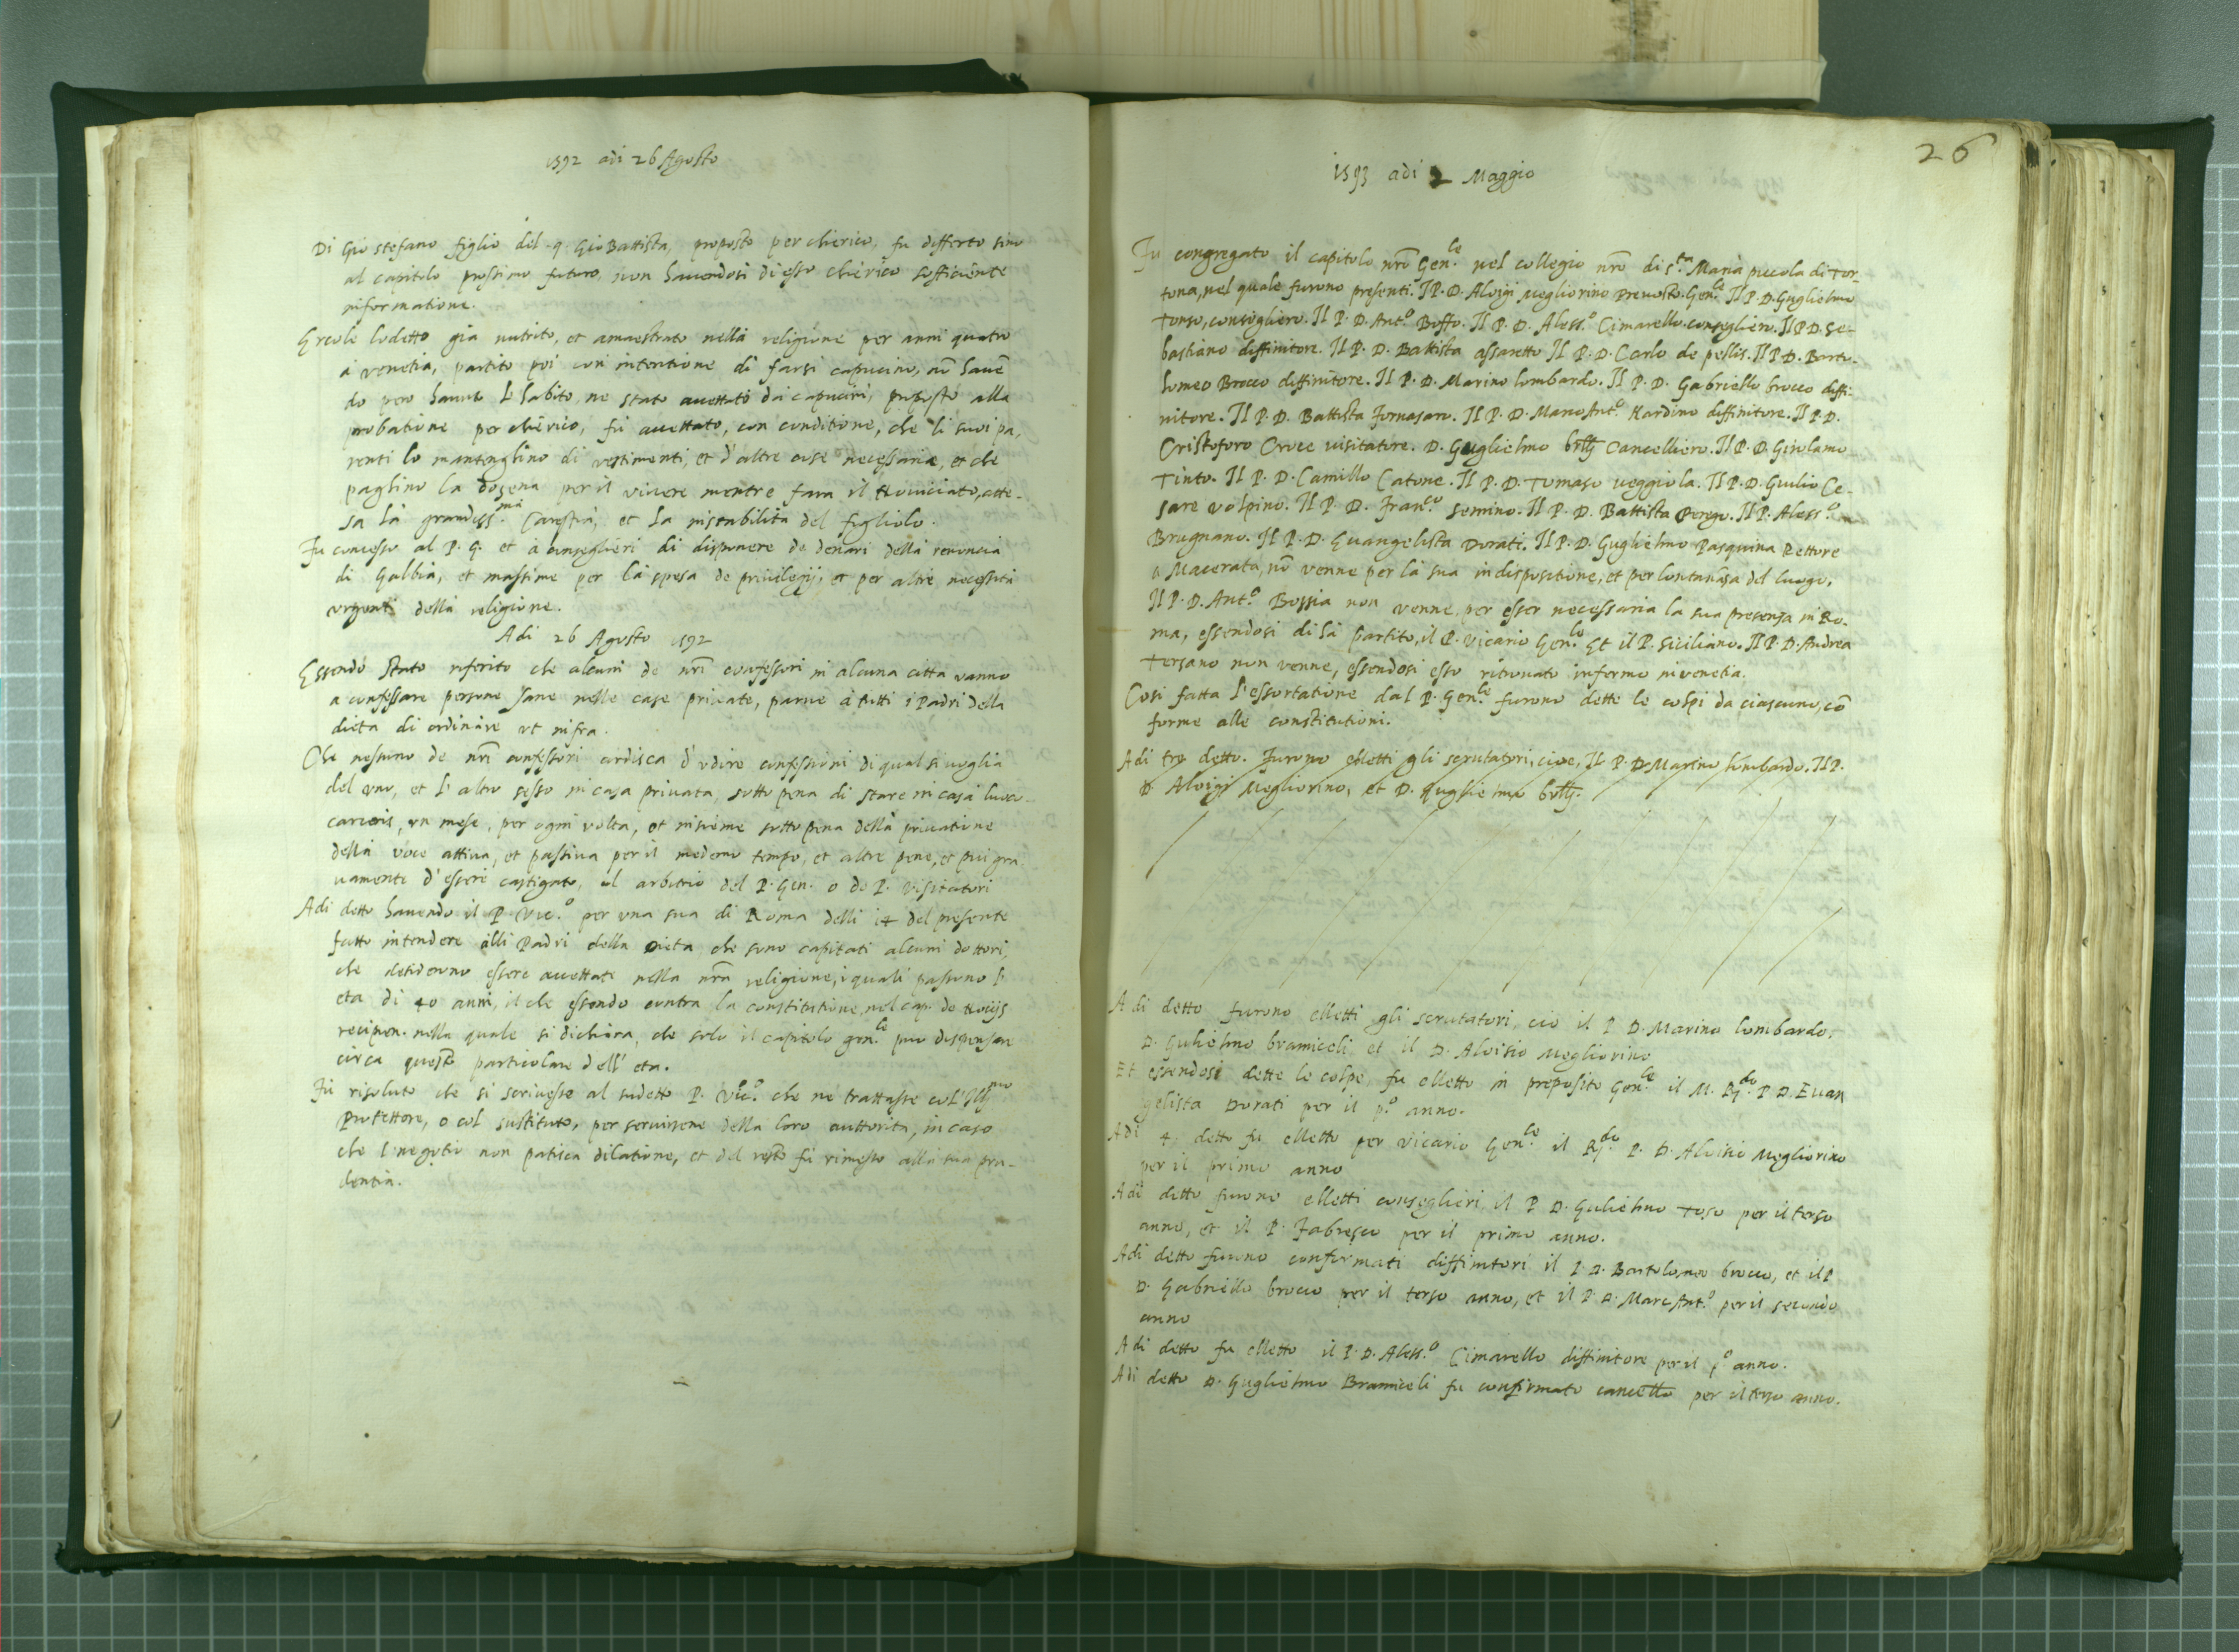 1592 adi 26 Agosto
Di Gio stefano figlio del q. Gio Battista, proposto per chierico, fu differto sino
al capitolo prossimo futuro, non havendosi di esso chierico sofficiente
informatione.
Ercole lodetto già nutrito, et amaestrato nella religione per anni quatro
à venetia, partito poi con intentione di farsi capucino, nō havē
do pero havuto l'habito, ne stato accettato da capucini, proposto alla
probatione per chierico, fù accettato, con conditione, che li suoi pa,
renti lo mantenghino di vestimenti, et d'altre cose necessarie, et che
paghino la dozena per il vivere mentre fara il Noviciato, atte-
sa la grandiss.ma Carestia, et la instabilita del figliolo.
Fu concesso al P. G. et à conseglieri di disponere de denari della renoncia
di Gabbia, et massime per la spesa de privilegij, et per altre necessità
urgenti della religione.
Adi 26 Agosto 1592
Essendo stato riferito che alcuni de nrī confessori in alcuna citta vanno
a confessare persone sane nelle case private, parve à tutti i Padri della
dieta di ordinare ut infra.
Che nessuno de nrī confessori ardisca d'udire confessioni di qual si voglia
del uno, et l'altro sesso in casa privata, sotto pena di stare in casa loco
carceris, un mese, per ogni volta, et insieme sotto pena della privatione
della voce attiva, et passiva per il medemo tempo, et altre pene, et piu gra
vamente d'essere castigato, al arbitrio del P. Gen. o de P. Visitatori
Adi detto havendo il P. Vic.o per una sua di Roma delli 14 del presente
fatto intendere alli Padri della Dieta che sono capitati alcuni dottori,
che desiderano essere accettati nella nrā religione, i quali passono l'
eta di 40 anni, il che essendo contra la constitutione, nel cap. de Novijs
recipien. nella quale si dichiara, che solo il capitolo gen.le puo dispensare
circa questo particolare dell'eta.
Fù risoluto che si scrivesse al sudetto P. Vic.o che ne trattasse col' Ill.mo
Protettore, o col sustituto, per servirsene della loro auttorita, in caso
che l'negotio non patisca dilatione, et del resto fù rimesso alla sua pru-
dentia.
26
1593 adi 2 Maggio
Fu congregato il capitolo nrō Gen.le nel collegio nrō di s.ta Maria piccola di Tor-
tona, nel quale furono presenti. Il P. D. Aloigi Megliorino Prevosto Gen.le Il P. D. Guglielmo
Tonso, consigliero. Il P. D. Ant.o Boffo. Il P. D. Aless.o Cimarello consegliero. Il P D. Se-
bastiano diffinitore. Il P. D. Battista assaretto Il P. D. Carlo de pellis. Il P D. Barto-
lomeo Brocco diffinitore. Il P. D. Marino lombardo. Il P. D. Gabriello brocco diffi-
nitore. Il P. D. Battista Fornasaro. Il P. D. Marc Ant.o Nardino diffinitore. Il P. D.
Cristoforo Croce visitatore. D. Guglielmo Cancelliero. Il P. D. Girolamo
Tinto. Il P. D. Camillo Catone. Il P. D. Tomaso veggiola. Il P. D. Giulio Ce-
sare volpino. Il P. D. Fran.co semino. Il P. D. Battista Perego. Il P. Aless.o
Brugnano. Il P. D. Evangelista Dorati. Il P. D. Guglielmo Pasquina Rettore
a Macerata, nō venne per la sua indispositione, et per lontananza del luogo.
Il P. D. Ant.o Bossia non venne, per esser necessaria la sua presenza in Ro-
ma, essendosi di là partito, il P. Vicario Gen.le Et il P. siciliano. Il P. D. Andrea
Terzano non venne, essendosi esso ritrovato infermo in venetia.
Cosi fatta l'essortatione dal P. Gen.le furono dette le colpi da ciascuno, cō
forme alle constitutioni.
Adi tre detto. Furono elletti gli scrutatori, cioe, Il P. D. Marino lombardo. Il P.
D. Aloigi Megliorino, et D. Guglielmo
Adi detto furono elletti gli scrutatori, cio il P D. Marino lombardo,
D. Gulielmo bramiceli et il D. Aloisio Megliorino
Et essendosi dette le colpe, fu elletto in preposito Gen.le il M. R.do P D. Evan
gelista Dorati per il p.o anno.
Adi 4 detto fu elletto per vicario Gen.le il R.do P. D. Aloisio Megliorino
per il primo anno
Adi detto furono elletti conseglieri il P D. Gulielmo Toso per il terzo
anno, et il P. Fabresco per il primo anno.
Adi detto furono confirmati diffinitori il P. D. Bartolomeo brocco, et il P
D. Gabriello brocco per il terzo anno, et il P. D. Marc Ant.o per il secondo
anno
Adi detto fu elletto il P. D. Aless.o Cimarello diffinitore per il p.o anno.
Adi detto D. Guglielmo Bramiceli fu confirmato cancello per il terzo anno.